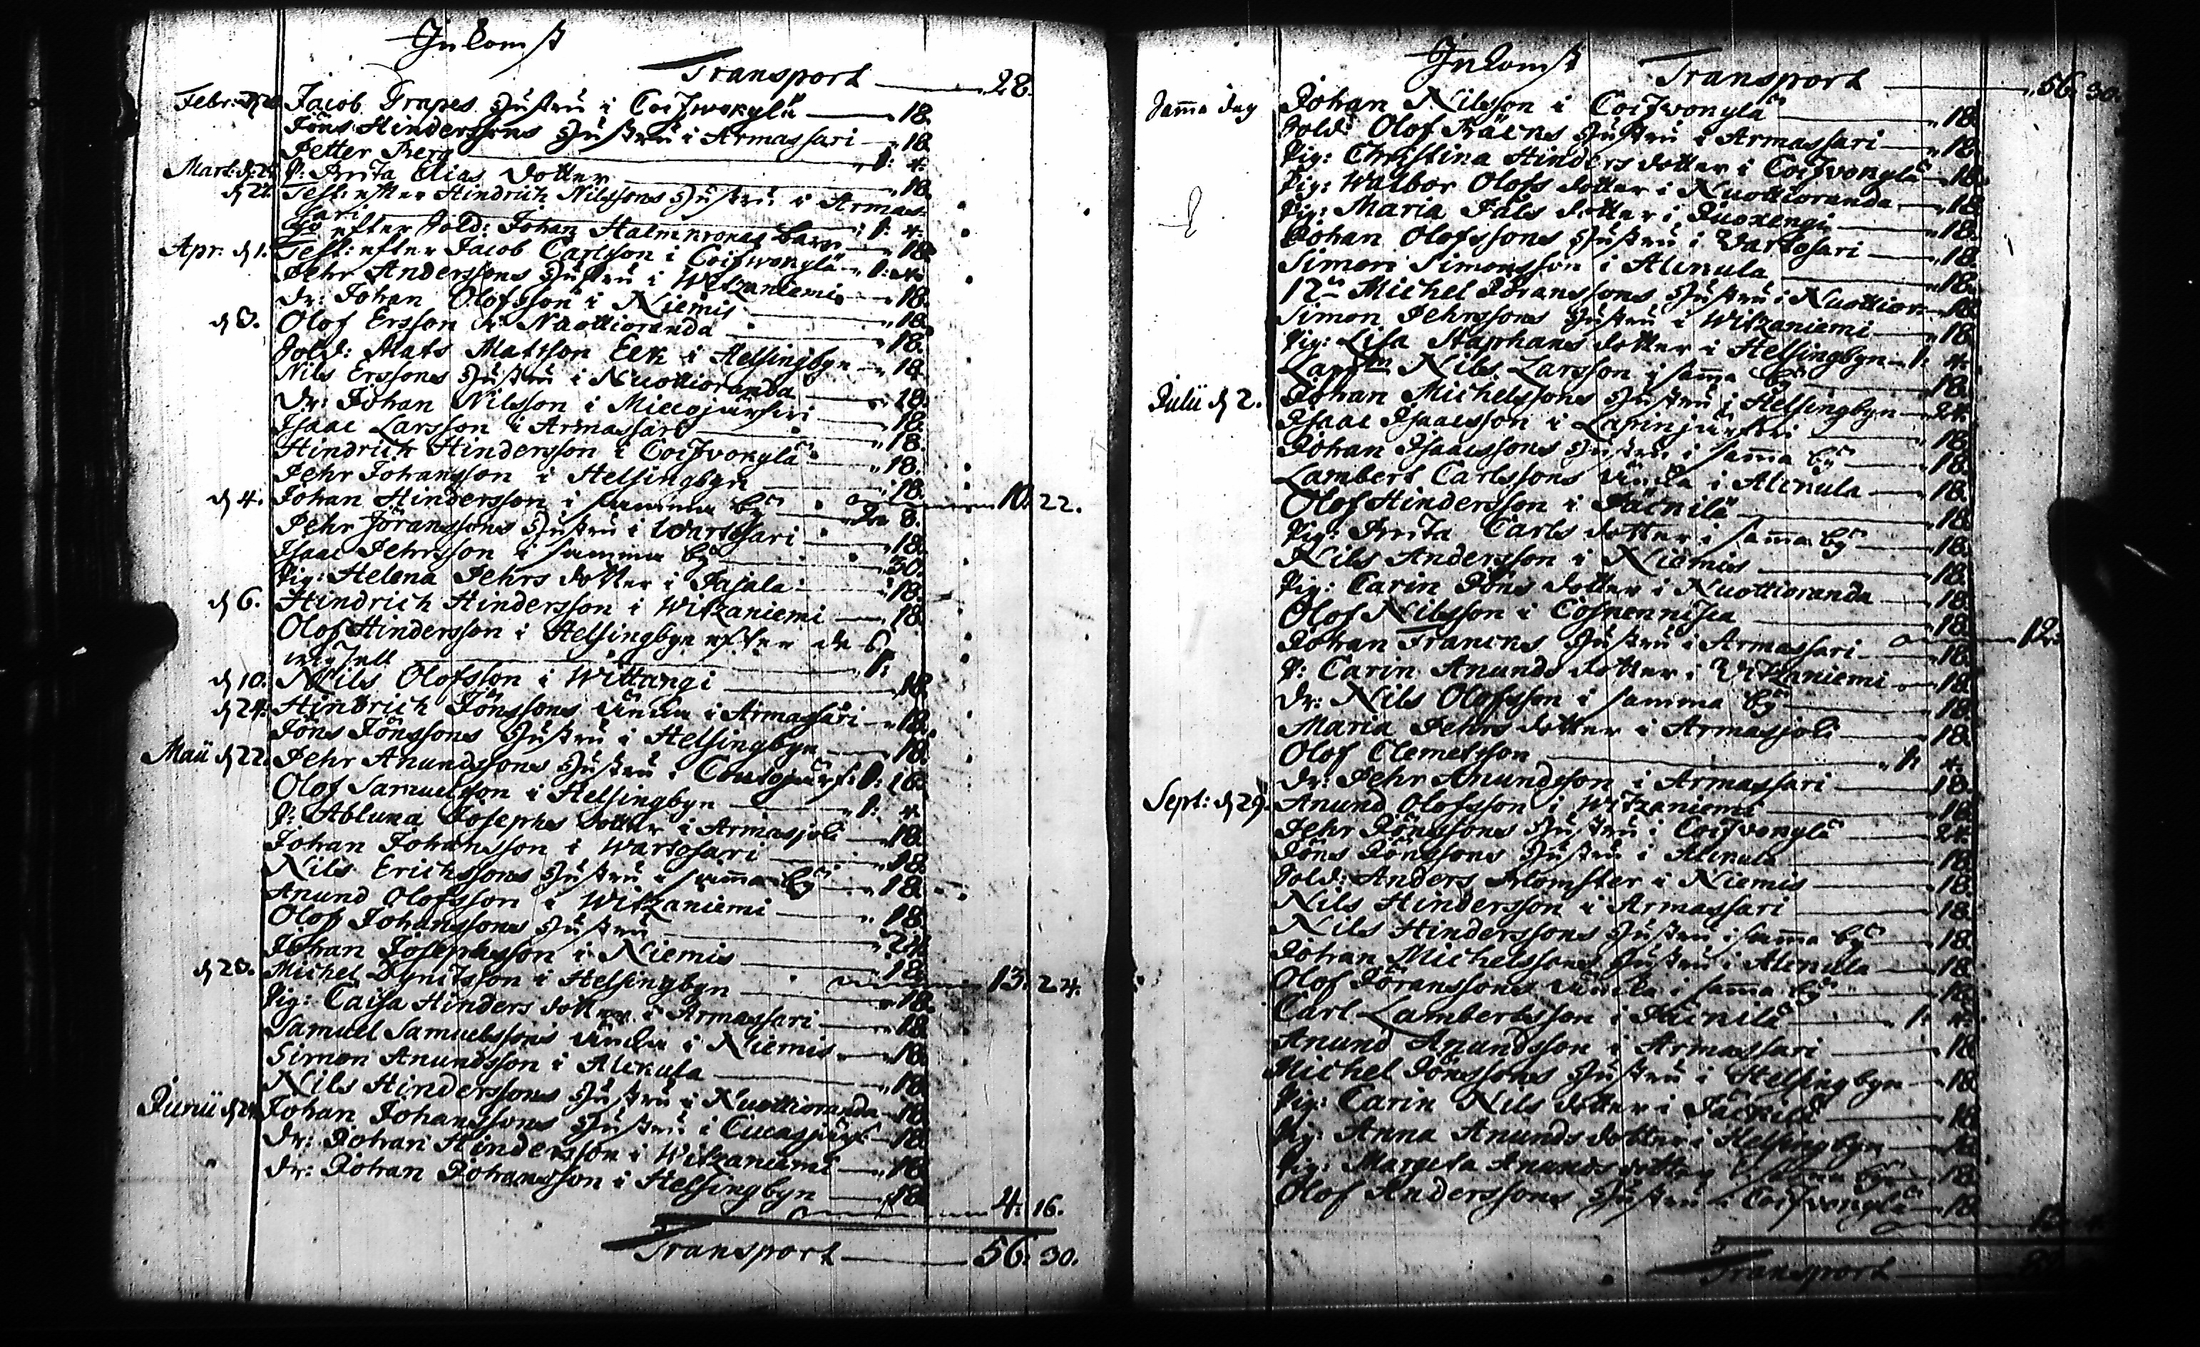 Inkomst
Transport 28.
Febr: Jacob Grapes Hustru i Coifwonglä 18.
Jöns Hinderssons Hustru i Armassari 18.
Petter Berg 1: 4.
Mart: d. P: Brita Elias dotter 18.
d 22. Test: efter Hindrich Nilssons Hustru i Armas
sari 1: 4.
efter Sold: Johan barn 18.
Apr: d 1. Test: efter Jacob Carlsson i Coifwonglä
Pehr Anderssons Hustru i Witzaniemi 18.
Dr: Johan Olofsson i Niemis 18.
d 3. Olof Ersson i Nuottioranda 18.
Sold: Mats Matsson Eek i Helsingbyn 18.
Nils Erssons Hustru i Nuottioranda 18.
Dr: Johan Nilsson i 18.
Isaac Larsson i Armassari 18.
Hindrich Hindersson i Coifvonglä 18.
Pehr Johansson i Helsingbyn 18.
d 4. Johan Hindersson i samma by 10. 22.
Pehr Jöranssons Hustru i Wartosari 18.
Isaac Pehrsson i samma by 30.
Pig: Helena Pehrs dotter i Pajala 18.
d 6. Hindrich Hindersson i Witzaniemi 18.
Olof Hindersson i Helsingbyn efter de
d 10. Nils Olofsson i Wittangi 18.
d 24. Hindrich Jönssons Encka i Armassari 18.
Jöns Jönssons Hustru i Helsingbyn 18.
Maii d 22. Pehr Anundssons Hustru i 1: 18.
Olof Samuelsson i Helsingbyn 1: 4.
P: Abluna Josephs dotter i Armasjoki 18.
Johan Johansson i Wartosari 18.
Nils Erichssons Hustru i samma by 18.
Anund Olofsson i Witzaniemi 18.
Olof Johanssons Hustru 24.
Johan Josephsson i Niemis 18.
d 23. Michel i Helsingbyn 18. 13. 24.
Pig: Caisa Hinders dotter i Armassari 18.
Samuel Samuelssons Encka i Niemis 18.
Simon Anundsson i Alcnula 18.
Nils Hinderssons Hustru i Nuottioranda 18.
Junii d 24 Johan Johanssons Hustru i 18.
Dr: Johan Hindersson i Witzaniemi 18.
Dr: Johan Johansson i Helsingbyn 18.
4. 16.
Transport 56. 30.
Inkomst
Transport 56. 30.
Samma dag Johan Nilsson i Coifvonglä 18.
Sold: Olof Hustru i Armassari 18.
Pig: Christina Hinders dotter i Coifvonglä 18.
Pig: Walbor Olofs dotter i Nuottioranda 18.
Pig: Maria Påls dotter i Ruokengi 18.
Johan Olofssons Hustru i Wartosari 18.
Simon Simonsson i Alcnula 18.
Michel Jöranssons Hustru i Nuottior 18.
Simon Pehrssons Hustru i Witzaniemi 18.
Pig: Lisa Staphans dotter i Helsingbyn 1: 4.
Nils Larsson i samma by 18.
Julii d 2. Johan Michelssons Hustru i Helsingbyn 24.
Isaac Isaacsson i 18.
Johan Isaacssons Hustru i samma by 18.
Lambert Carlssons Encka i Alcnula 18.
Olof Hindersson i Päcnilä 18.
Pig: Brita Carls dotter i samma by 18.
Nils Andersson i Niemis 18.
Pig: Carin Jöns dotter i Nuottioranda 18.
Olof Nilsson i 18.
Johan Hustru i Armassari 18. 12.
P: Carin Anunds dotter i Witzaniemi 18.
Dr: Nils Olofsson i samma by 18.
Maria Pehrs dotter i Armasjoki 18.
Olof Clemetsson 1: 4.
Dr: Pehr Anundsson i Armassari 18.
Sept: d 29. Anund Olofsson i Witzaniemi 18.
Pehr Jönssons Hustru i Coifvonglä 24.
Jöns Jönssons Hustru i Alcnula 18.
Sold: Anders Blomster i Niemis 18.
Nils Hindersson i Armassari 18.
Nils Hinderssons Hustru i samma by 18.
Johan Michelssons Hustru i Alcnula 18.
Olof Jöranssons Encka i samma by 18.
Carl Lambertsson i Päcnilä 1: 4.
Anund Anundsson i Armassari 18.
Michel Jönssons Hustru i Helsingbyn 18.
Pig: Carin Nils dotter i Päcnilä 18.
Pig: Anna Anunds dotter i Helsingbyn 18.
Pig: Margeta Anunds dotter i samma by 18.
Olof Anderssons Hustru i Coifvonglä 18.
Transport